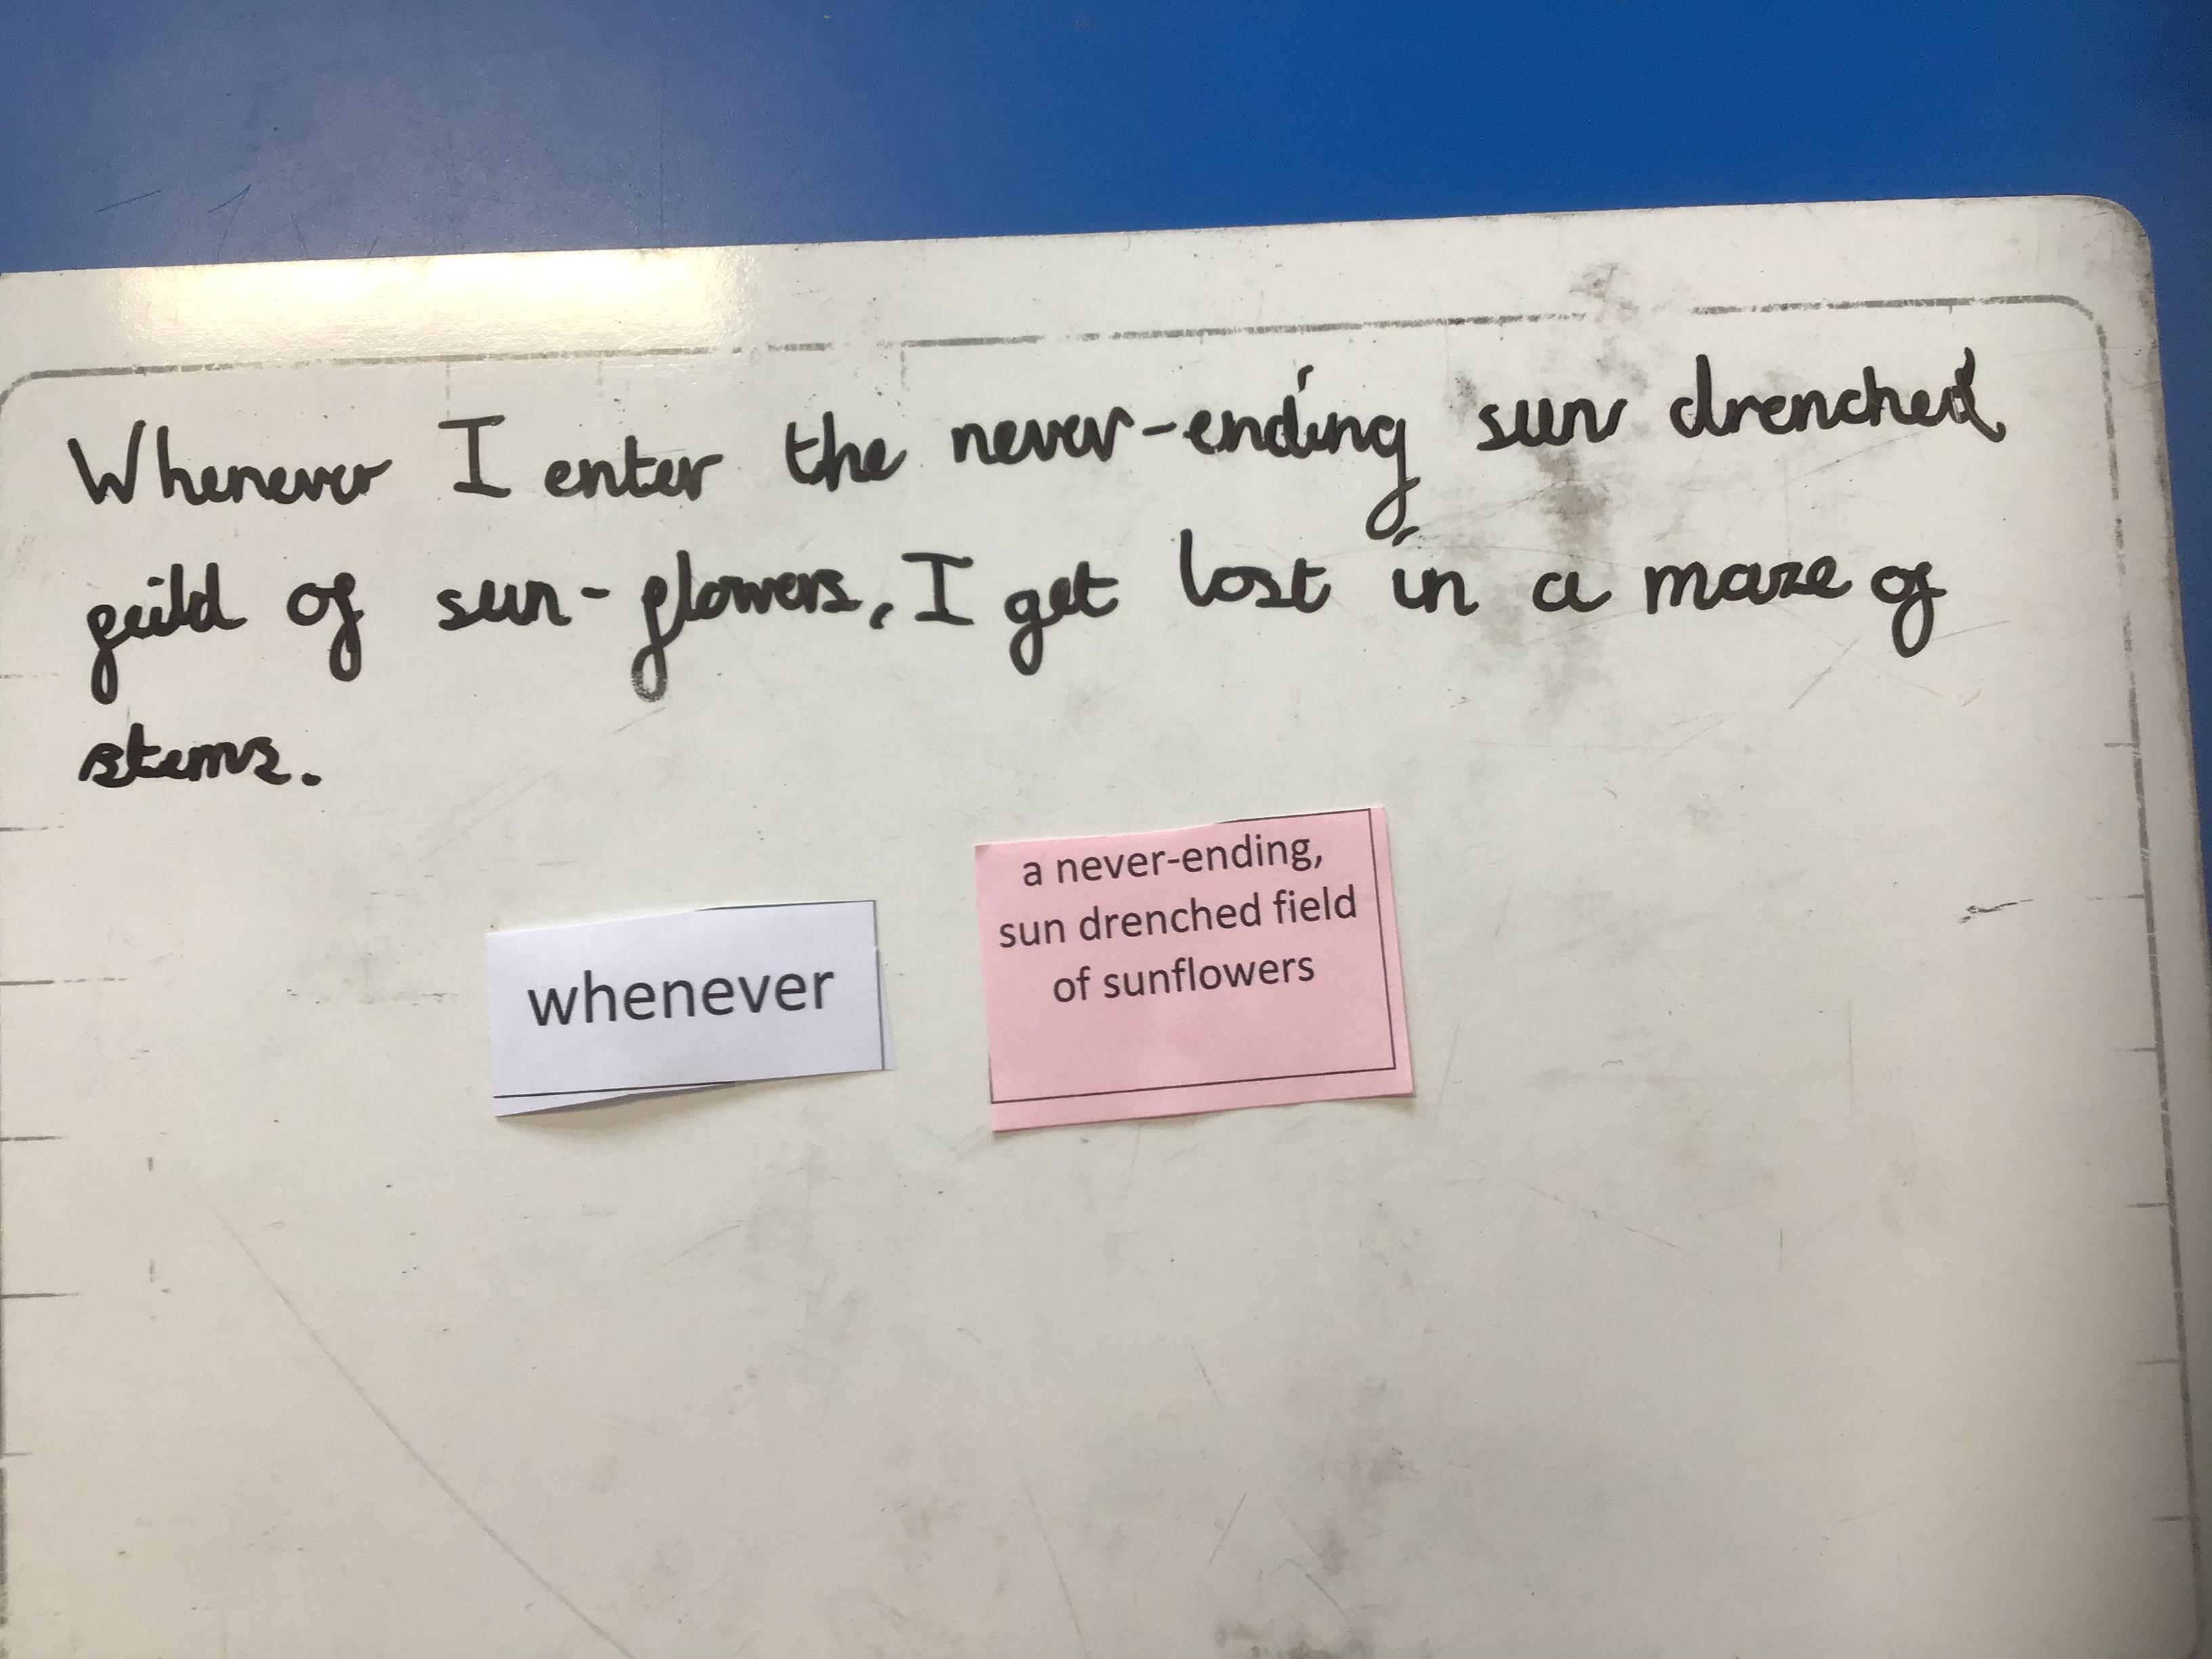 Whenever I enter the never-ending sun drenched
feild of sun-flowers, I get lost in a maze of
stems.
whenever
a never-ending,
sun drenched field
of sunflowers